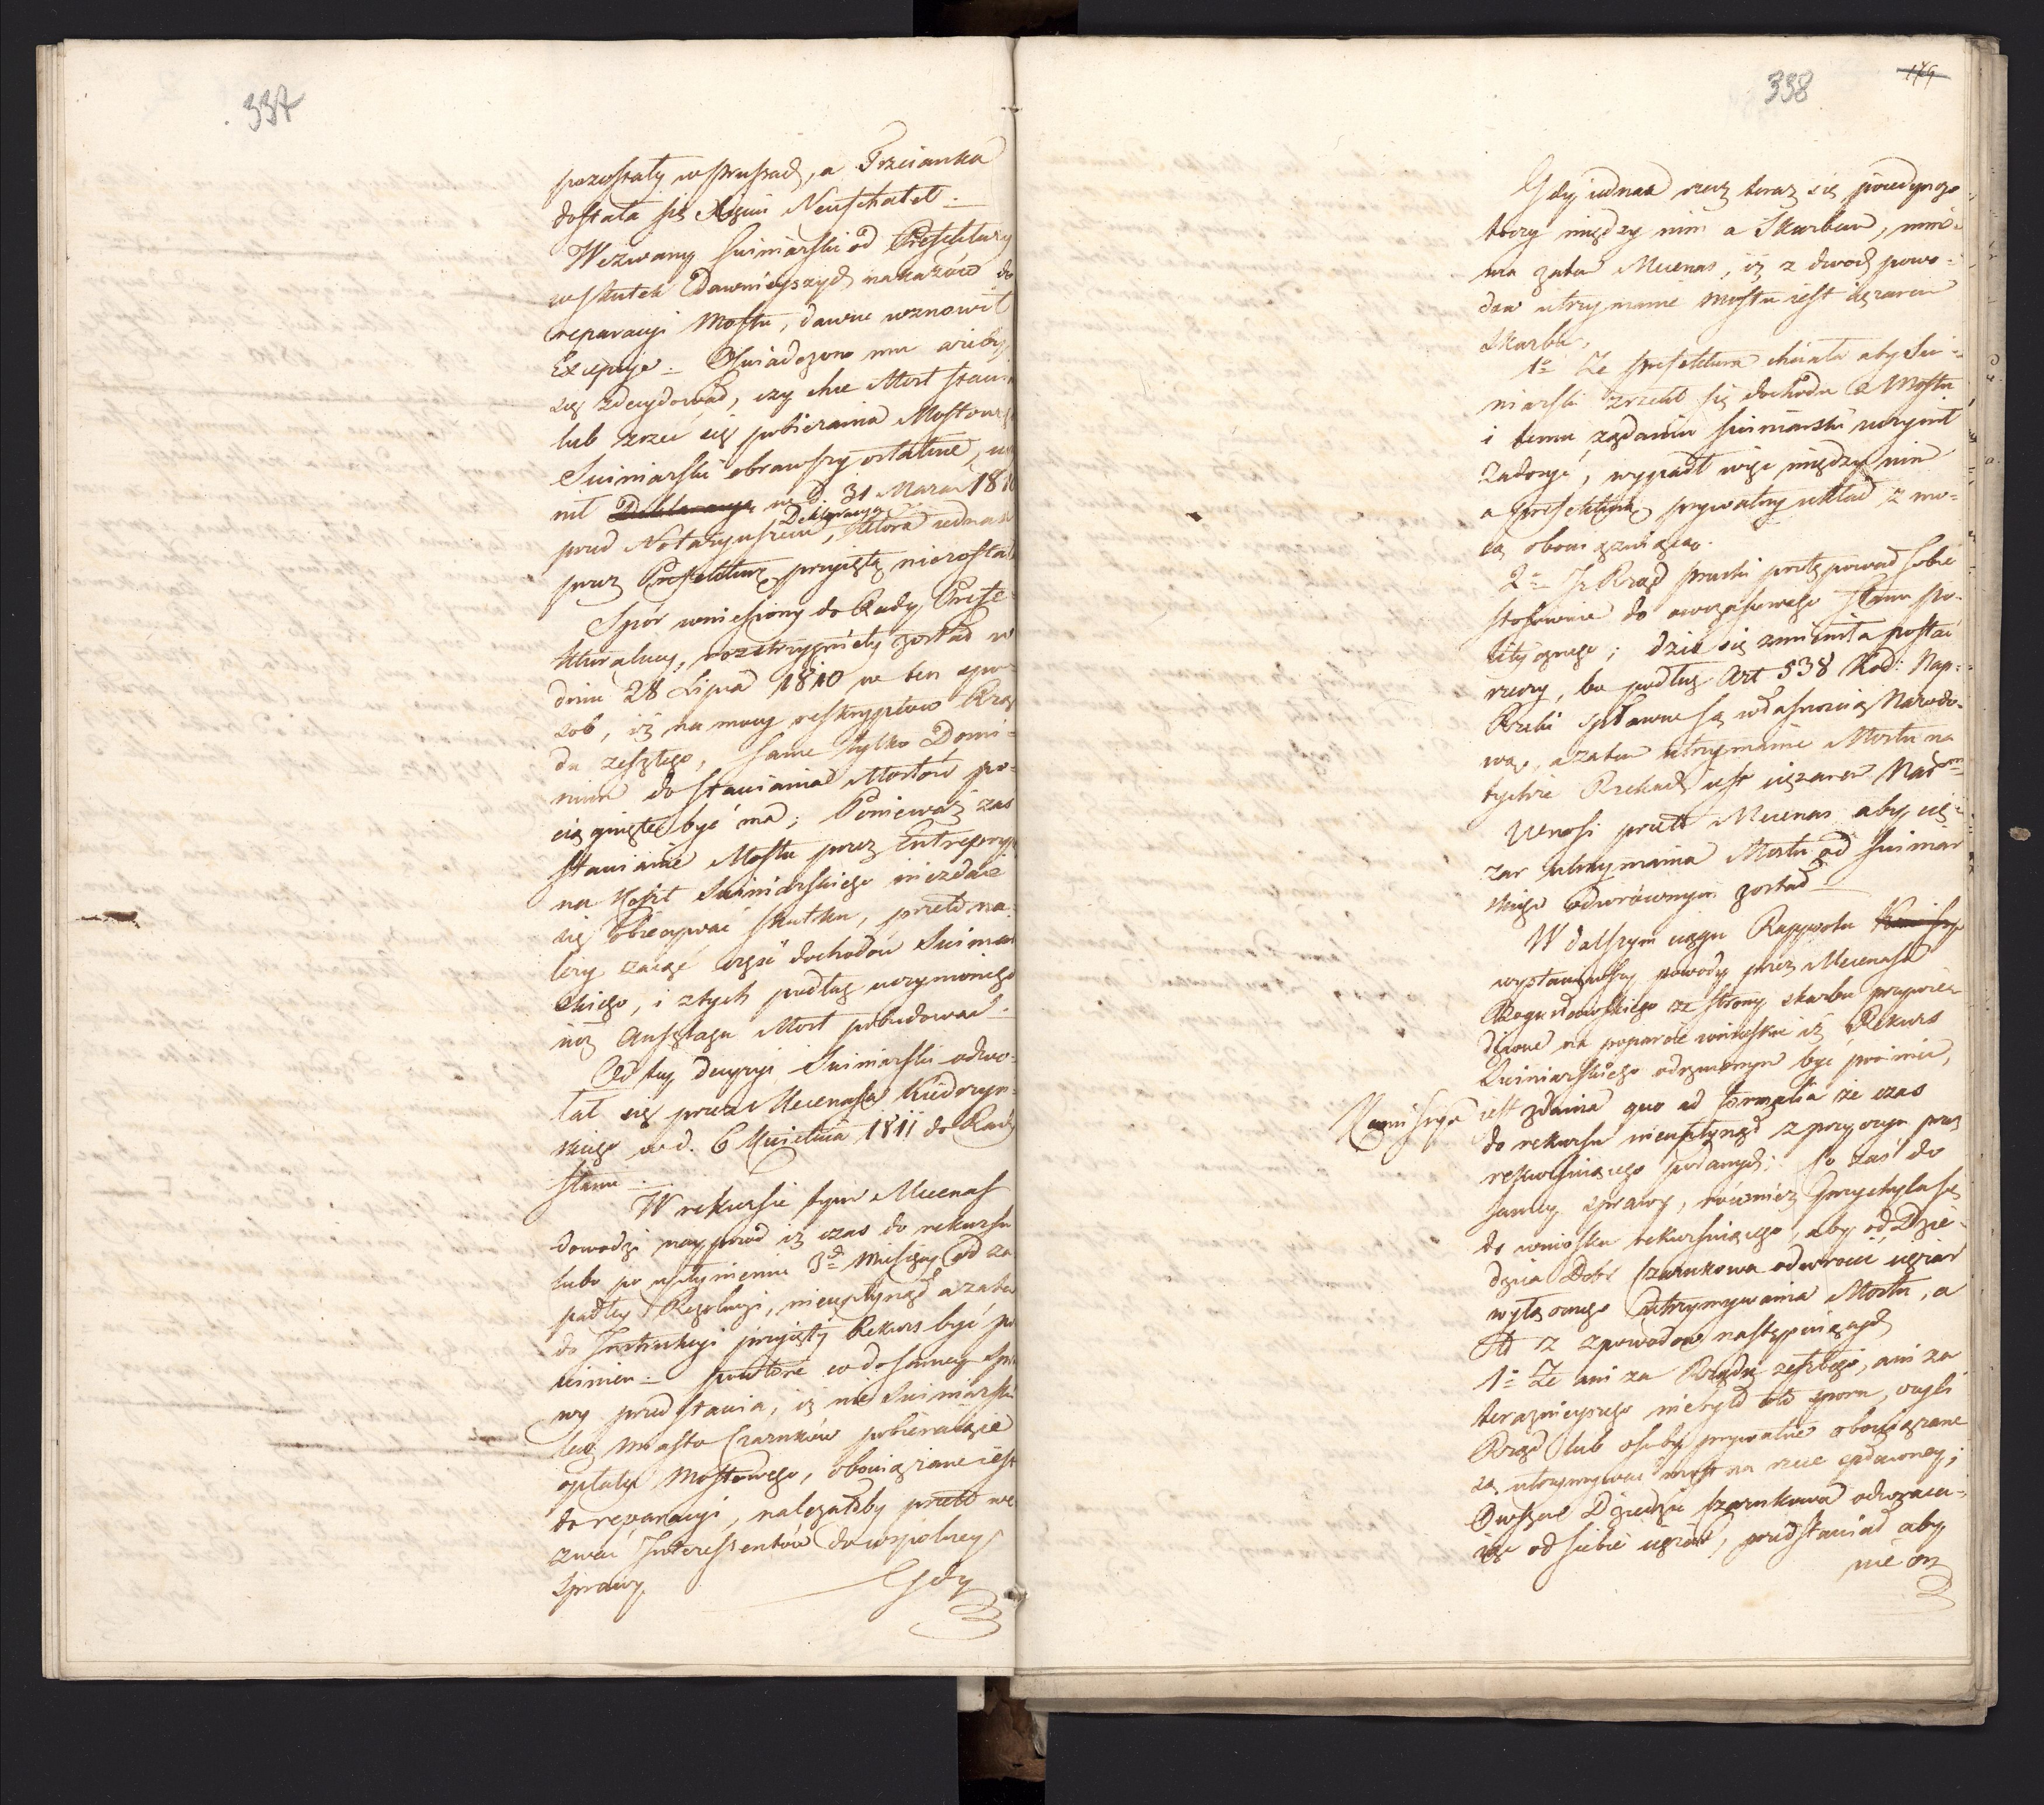 337
pozostały w Prusach, a Trzcianka
dostała się Xięciu Neufchatel. –
Wezwany Swiniarski od Prefektury
w skutek dawnieyszych nakazów do
reparacyi Mostu, dawne wznowił
Excepcye. – Oświadczono mu ażeby
się zdecydował, czy chce Most staw
lub zrzec się pobierania Mostowe
Swiniarski obrawszy ostatnie, u
nił Deklaracyę w d. 31 Marca 181
Deklaracyę
przed Notaryuszem, która iednak
przez Prefekturę przyiętą niezosta
Spór wniesiony do Rady Prefe
kturalney, rozstrzygnięty został w
dniu 28 Lipca 1810 w ten spo
sob, iż na mocy reskryptow Rzą
du zeszłego, same tylko Domi-
nium do stawiania Mostów po-
ciągnięte być ma; Ponieważ zas
stawianie Mostu przez Entrepryz
na Koszt Swiniarskiego niezdaie
się obiecywać skutku, przeto na-
leży zaiąć część dochodów Swiniar
skiego, i z tych podług uczynionego
iuż Anszlagu Most pobudować. –
Od tey decyzyi Swiniarski odwo-
łał się przez Mecenasa Kiedrzyn-
skiego w d. 6 Kwietnia 1811 do Rady
Stanu. –
W rekursie tym Mecenas
dowodzi nayprzod iż czas do rekursu
lubo po upłynieniu 3ch Miesięcy od za
padłey Rezolucyi, nieupłynął a zatem
do Instrukcyi przyięty Rekurs być po
winien. – powtóre co do samey spra
wy przedstawia, iż nie Swiniarski
lecz Miasto Czarnków pobieraiące
opłatę Mostowego, obowiązane iest
do reparacyi, należałoby przeto we
zwać Interessentów do wspolney
sprawy.
Gdy
338
179
Gdy iednak rzecz teraz się poiedynczo
toczy między nim a Skarbem, mnie-
ma zatem Mecenas, iż z dwoch powo-
dów utrzymanie Mostu iest ciężarem
Skarbu,
1o Że prefektura chciała aby Swi-
niarski zrzekł się dochodu z Mostu
i temu żądaniu Swiniarski uczynił
zadosyć, wypadł więc między nim
a prefekturą prywatny układ z mo-
cą obowiązuiącą.
2o Iż Rząd pruski postępował sobie
stosownie do owczasowego stanu Po-
litycznego; dziś się zmieniła postać
rzeczy, bo podług Art 538 Kod: Nap:
Rzeki spławne są własnością Narodo-
wą, a zatem utrzymanie Mostu na
tychże Rzekach iest ciężarem Narom
Wnosi przeto Mecenas aby cię-
żar utrzymania Mostu od Swiniar
skiego odwróconym został –
W dalszym ciągu Rapportu Kommissya
wystawiwszy powody przez Mecenasa
ze strony skarbu przywie-
dzione na poparcie wniosku iż Rekurs
Swiniarskiego odrzuconym być powinien,
Kommissya iest zdania quo ad formalia że czas
do rekursu nieupłynął z przyczyn przez
rekursuiącego podanych; Co zaś do
samey sprawy, również przychyla się
do wniosku rekursuiącego, aby od Dzie-
dzica Dobr Czarnkowa odwrocić ciężar
wyłącznego utrzymywania Mostu, a
to z powodow następuiących
1o Że ani za Rządu zeszłego, ani za
teraznieyszego niebyło to sporu, czyli
Rząd lub osoby prywatne obowiązane
są utrzymywać most na rzece spławney;
Owszem Dziedzic Czarnkowa odrzuca-
iąc od siebie ciężar, przedstawiał aby
nie on